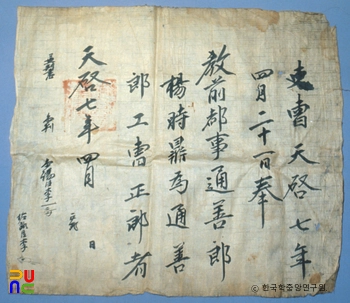 吏曹天啓七年
四月二十一日奉
教前都事通善郞
楊時鼎爲通善
郞工曹正郞者
天啓七年四月 日
ⓒ 한국학중앙연구원